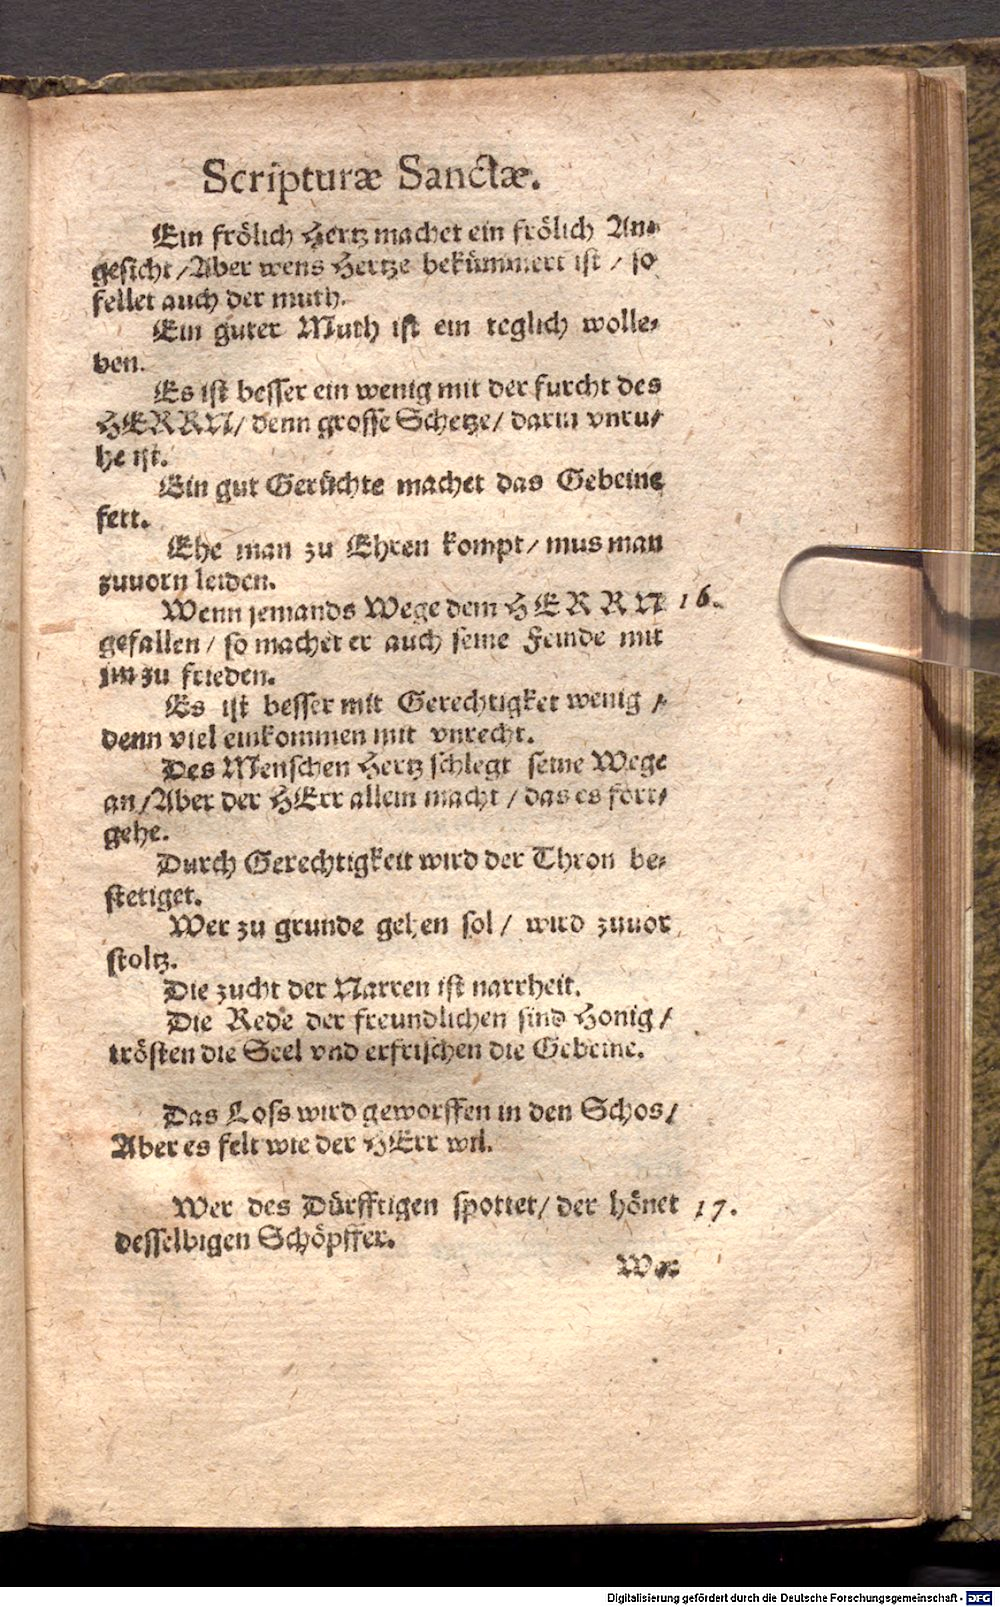 Scripturæ Sanctæ.
Ein frölich Hertz machet ein frölich An-
gesicht / Aber wens Hertze bekümmert ist / so
fellet auch der muth.
Ein guter Muth ist ein teglich wolle-
ben.
Es ist besser ein wenig mit der furcht des
HERRN / denn grosse Schetze / darin vnru-
he ist.
Ein gut Gerüchte machet das Gebeine
fett.
Ehe man zu Ehren kompt / mus man
zuuorn leiden.
Wenn jemands Wege dem HERRN 16.
gefallen / so machet er auch seine Feinde mit
jm zu frieden.
Es ist besser mit Gerechtigket wenig /
denn viel einkommen mit vnrecht.
Des Menschen Hertz schlegt seine Wege
an / Aber der HErr allein macht / das es fort-
gehe.
Durch Gerechtigkeit wird der Thron be-
stetiget.
Wer zu grunde gehen sol / wird zuuor
stoltz.
Die zucht der Narren ist narrheit.
Die Rede der freundlichen sind Honig /
trösten die Seel vnd erfrischen die Gebeine.
Das Loss wird geworffen in den Schos /
Aber es felt wie der HErr wil.
Wer des Dürfftigen spottet / der hönet 17.
desselbigen Schöpffer.
Wer
Digitalisierung gefördert durch die Deutsche Forschungsgemeinschaft - DFG